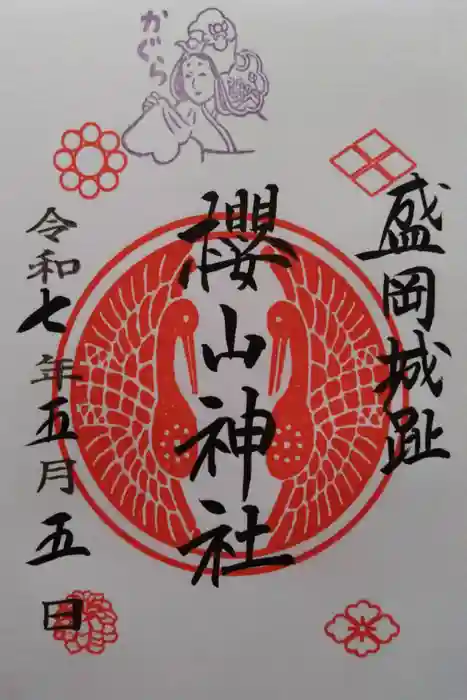 盛岡城趾
櫻山神社
令和七年五月五日
かぐら